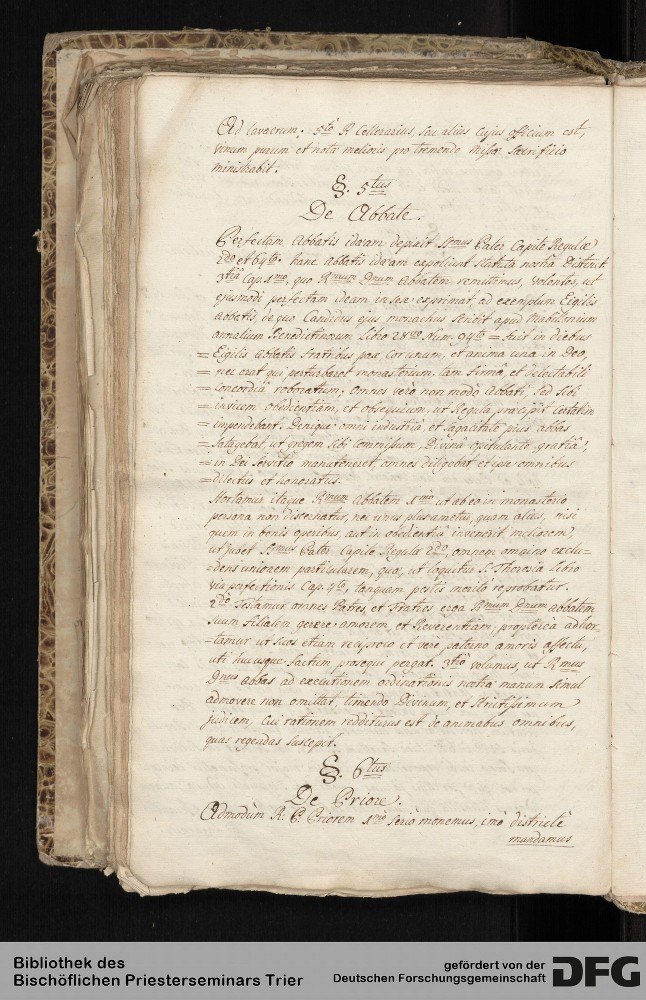 Ad lavacrum. 5tò P. Cellerarius, seu alius Cujus officium est,
vinum purum et nota melioris pro tremendo Missæ Sacrificio
ministrabit.
§. 5tus
De Abbate.
Perfectam Abbatis idæam depinxit Ssmus Pater Capite Regulæ
2do et 64to. hanc abbatis idæam expoliunt Statuta nostra Distinct.
3tiâ Cap. 1mo, quo Rmum Dnum Abbatem remittimus, volentes, ut
ejusmodi perfectam ideam in se exprimat, ad exemplum Eigilis
abbatis, de quo Candidus ejus monachus scribit apud Mabillonium
annalium Benedictinorum Libro 28vo Num. 94to = fuit in diebus
= Eigilis abbatis Fratribus pax, Cor unum, et anima una in Deo,
= nec erat qui perturbaret monasterium tam firmâ, et delectabili
= Concordiâ roboratum; Omnes verò non modò Abbati, sed sibi
= invicem obedientiam, et obsequium, ut Regula præcipit certatim
= impendebant. Denique omni industriâ, et sagacitate pius abbas
= Satagebat, ut gregem sibi Commissum, Divinâ opitulante gratiâ,
= in Dei servitio manuteneret, omnes diligebat, et ipse omnibus
= dilectus et honoratus.
Hortamur itaque Rmum Abbatem 1mò ut ab eo in monasterio
persona non discernatur, nec unus plus ametur, quam alius, nisi
quem in bonis operibus, aut in obedientiâ invenerit meliorem,
ut jubet Ssmus Pater Capite Regulæ 2do, omnem omnino exclu=
=dens unionem particularem, quæ, ut loquitur S. Theresia Libro
via perfectionis Cap. 4to, tanquam pestis meritò reprobatur.
2dò Testamur omnes Patres et Fratres erga Rmum Dnum abbatem
suum filialem gerere amorem, et Reverentiam, propterea adhor=
=tamur, ut suos etiam reciproco et vere paterno amoris affectu,
uti hucusque factum, prosequi pergat. 3tiò volumus, ut Rmus
Dnus Abbas ad executionem ordinationis nostræ manum simul
admovere non omittat, timendo Divinum, et strictissimum
judicem, Cui rationem redditurus est de animabus omnibus,
quas regendas suscepit.
§. 6tus
De Priore.
Admodùm R. P. Priorem 1mò seriò monemus, imò districtè
mandamus
Bibliothek des
Bischöflichen Priesterseminars Trier
gefördert von der
Deutschen Forschungsgemeinschaft
DFG